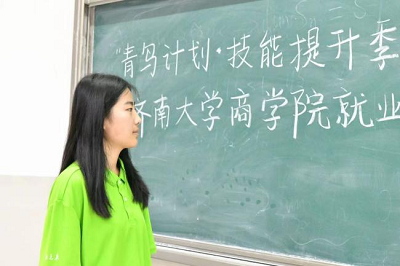 “青鸟计划·技能提升季
济南大学商学院就业